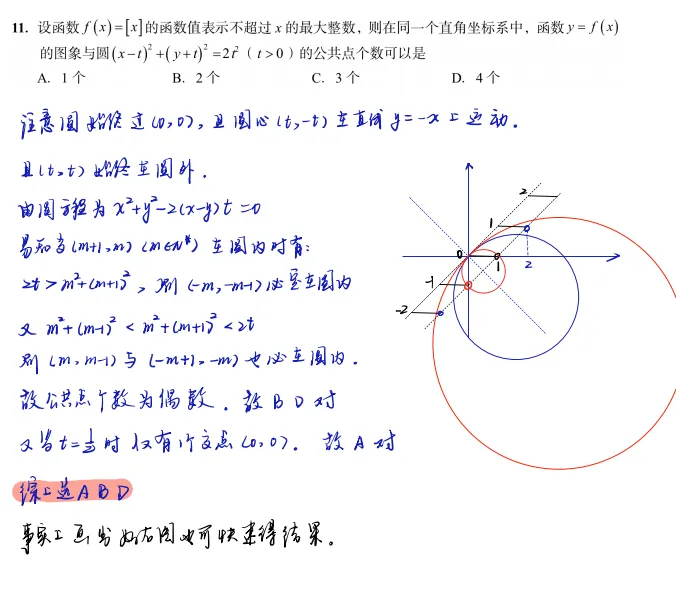 11. 设函数 f(x)=[x] 的函数值表示不超过 x 的最大整数，则在同一个直角坐标系中，函数 y=f(x)
的图象与圆 (x−t)²+(y+t)²=2t²（t>0）的公共点个数可以是
A. 1个 B. 2个 C. 3个 D. 4个
注意圆始终过(0,0)，且圆心(t,-t)在直线 y=-x 上运动．
且(t,t)始终在圆外．
由圆方程为 x²+y²-2(x-y)t=0
易知当(m+1,m) (m∈N*) 在圆内时有：
2t>m²+(m+1)²，则 (-m,-m-1)必定在圆内
又 m²+(m-1)²<m²+(m+1)²<2t
则 (m,m-1)与(-m+1,-m)也必在圆内．
故公共点个数为偶数．故 B D 对
又当 t=½ 时 仅有1个交点(0,0)．故 A 对
综上选 A B D
事实上画出如右图也可快速得结果。
2
1
0
1
2
-1
-2